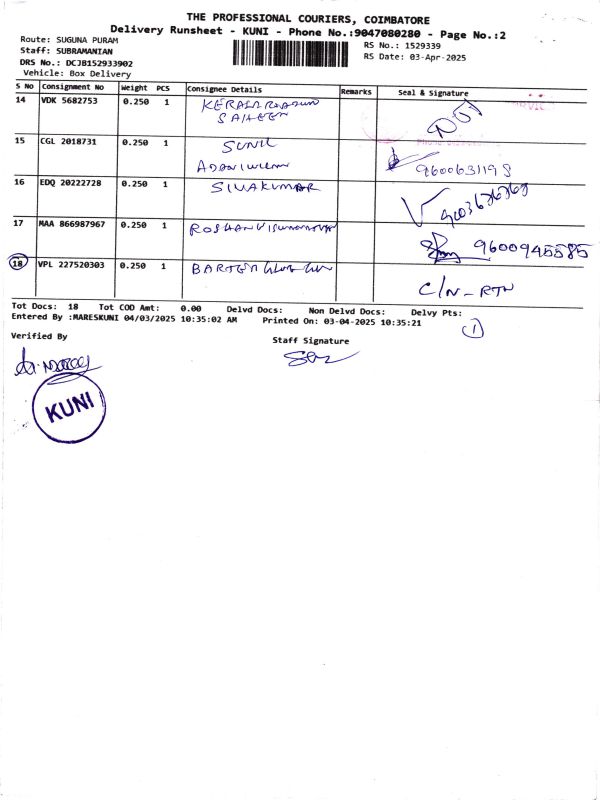 THE PROFESSIONAL COURIERS, COIMBATORE
Delivery Runsheet - KUNI - Phone No.:9047080280 - Page No.:2
Route: SUGUNA PURAM
RS No.: 1529339
Staff: SUBRAMANIAN
RS Date: 03-Apr-2025
DRS No.: DCJB152933902
Vehicle: Box Delivery
S No Consignment No Weight PCS Consignee Details Remarks Seal & Signature
14 VDK 5682753 0.250 1
15 CGL 2018731 0.250 1 SUNIL
9600631198
16 EDQ 20222728 0.250 1 SIVAKUMAR
17 MAA 866987967 0.250 1
9600945585
18 VPL 227520303 0.250 1
C/N-RTN
Tot Docs: 18 Tot COD Amt: 0.00 Delvd Docs: Non Delvd Docs: Delvy Pts:
Entered By :MARESKUNI 04/03/2025 10:35:02 AM Printed On: 03-04-2025 10:35:21
1
Verified By
Staff Signature
KUNI